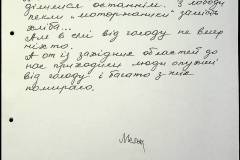 ділилися останнім. З лободи
пекли „моторжаники" замість
хліба...
Але в селі від голоду не вмер
ніхто.
А от із західних областей до
нас приходили люди опухлі
від голоду і багато з них
помирало.